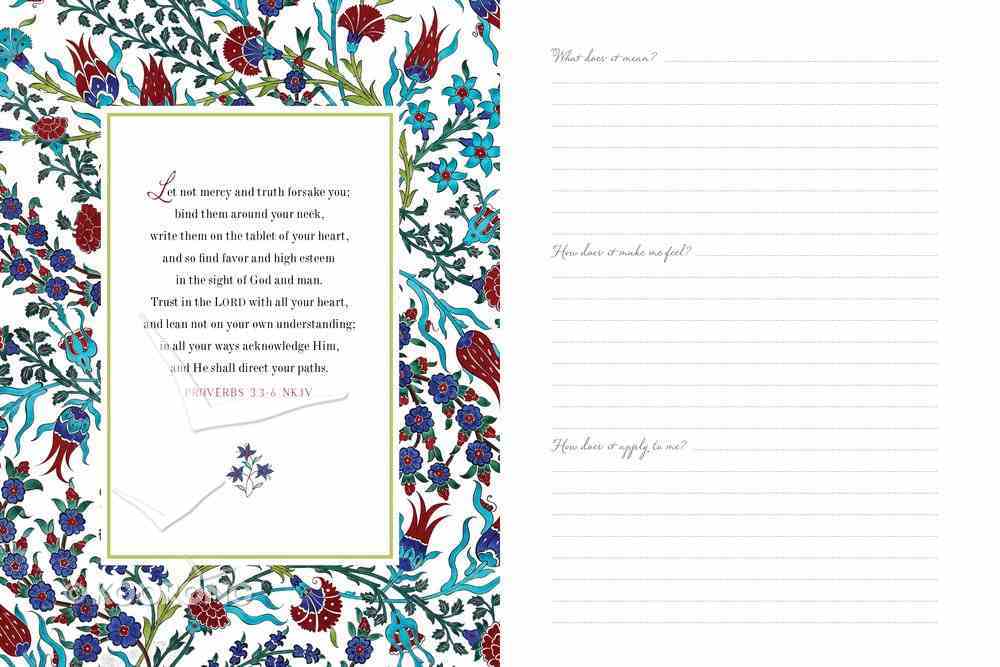 Let not mercy and truth forsake you;
bind them around your neck,
write them on the tablet of your heart,
and so find favor and high esteem
in the sight of God and man.
Trust in the LORD with all your heart,
and lean not on your own understanding;
in all your ways acknowledge Him,
and He shall direct your paths.
PROVERBS 3:3-6 NKJV
What does it mean?
How does it make me feel?
How does it apply to me?